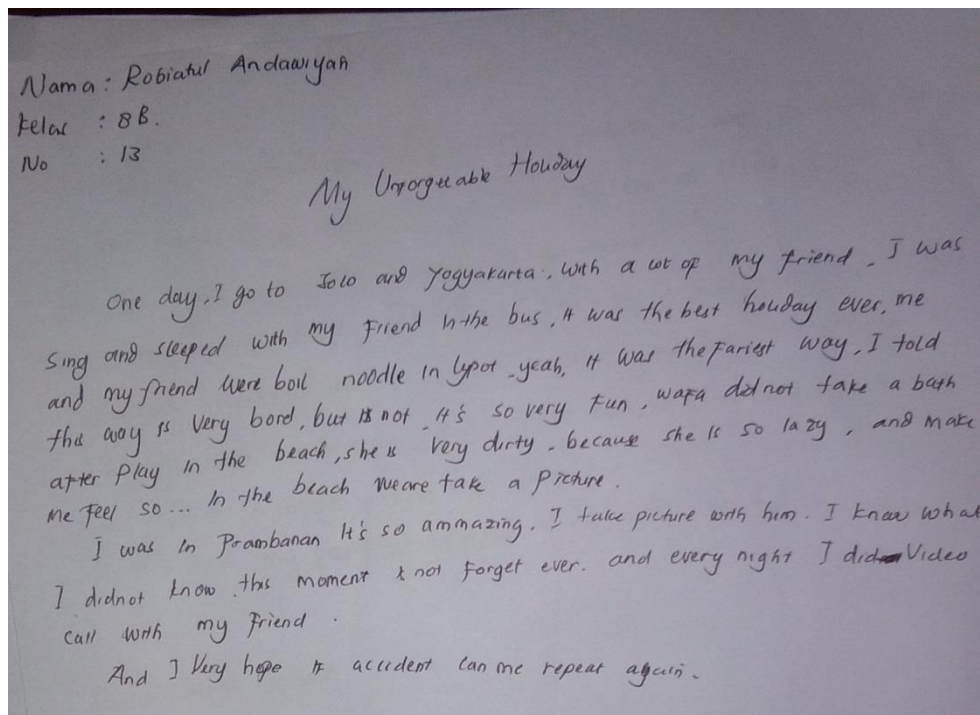 Nama : Robiatul Andawiyah
Kelas : 8B.
No : 13
My Unforgetable Houday
One day, I go to Solo and Yogyakarta, with a lot of my friend. I was
Sing and sleeped with my Friend in the bus, it was the best houday ever, me
and my friend were boil noodle in lypot. yeah, it was the Fariest way, I told
this way is very bord, but is not, it's so very fun, wafa did not take a bath
after play in the beach, she is very dirty, because she is so lazy, and make
me feel so... In the beach we are take a picture.
I was in Prambanan it's so ammazing. I take picture with him. I know what
I didnot know, this moment not forget ever. and every night I did Video
call with my friend.
And I Very hope accident can me repeat again.